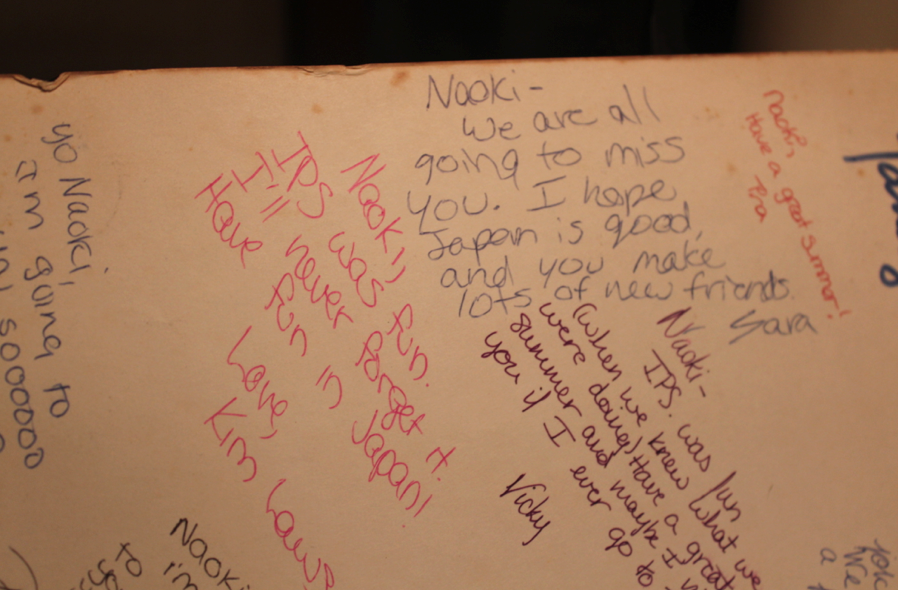 yo Naoki,
I'm going to
sooooo
Naoki,
IPS was fun.
I'll never forget it.
Have fun in Japan!
Love,
Kim
Naoki-
We are all
going to miss
you. I hope
Japan is good,
and you make
lots of new friends.
Sara
Naoki,
Have a great summer!
Naoki-
IPS. was fun
(when we knew what we
were doing) Have a great
summer and maybe I
you if I ever go to
Vicky
Naoki
to